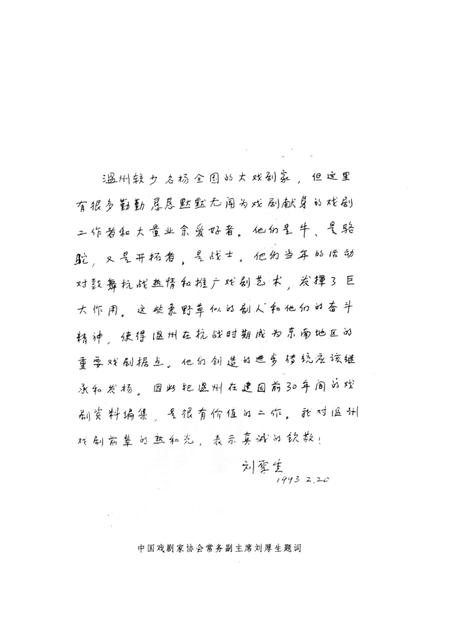 温州较少名扬全国的大戏剧家，但这里
有很多勤勤恳恳默默无闻为戏剧献身的戏剧
工作者和大量业余爱好者。他们是牛、是骆
驼，又是开拓者，是战士。他们当年的活动
对鼓舞抗战热情和推广戏剧艺术，发挥了巨
大作用。这些象野草似的剧人和他们的奋斗
精神，使得温州在抗战时期成为东南地区的
重要戏剧据点。他们创造的进步传统应该继
承和发扬。因此把温州在建国前30年间的戏
剧资料编集，是很有价值的工作。我对温州
戏剧前辈的热和光，表示真诚的钦敬！
刘厚生
1993.2.20
中国戏剧家协会常务副主席刘厚生题词